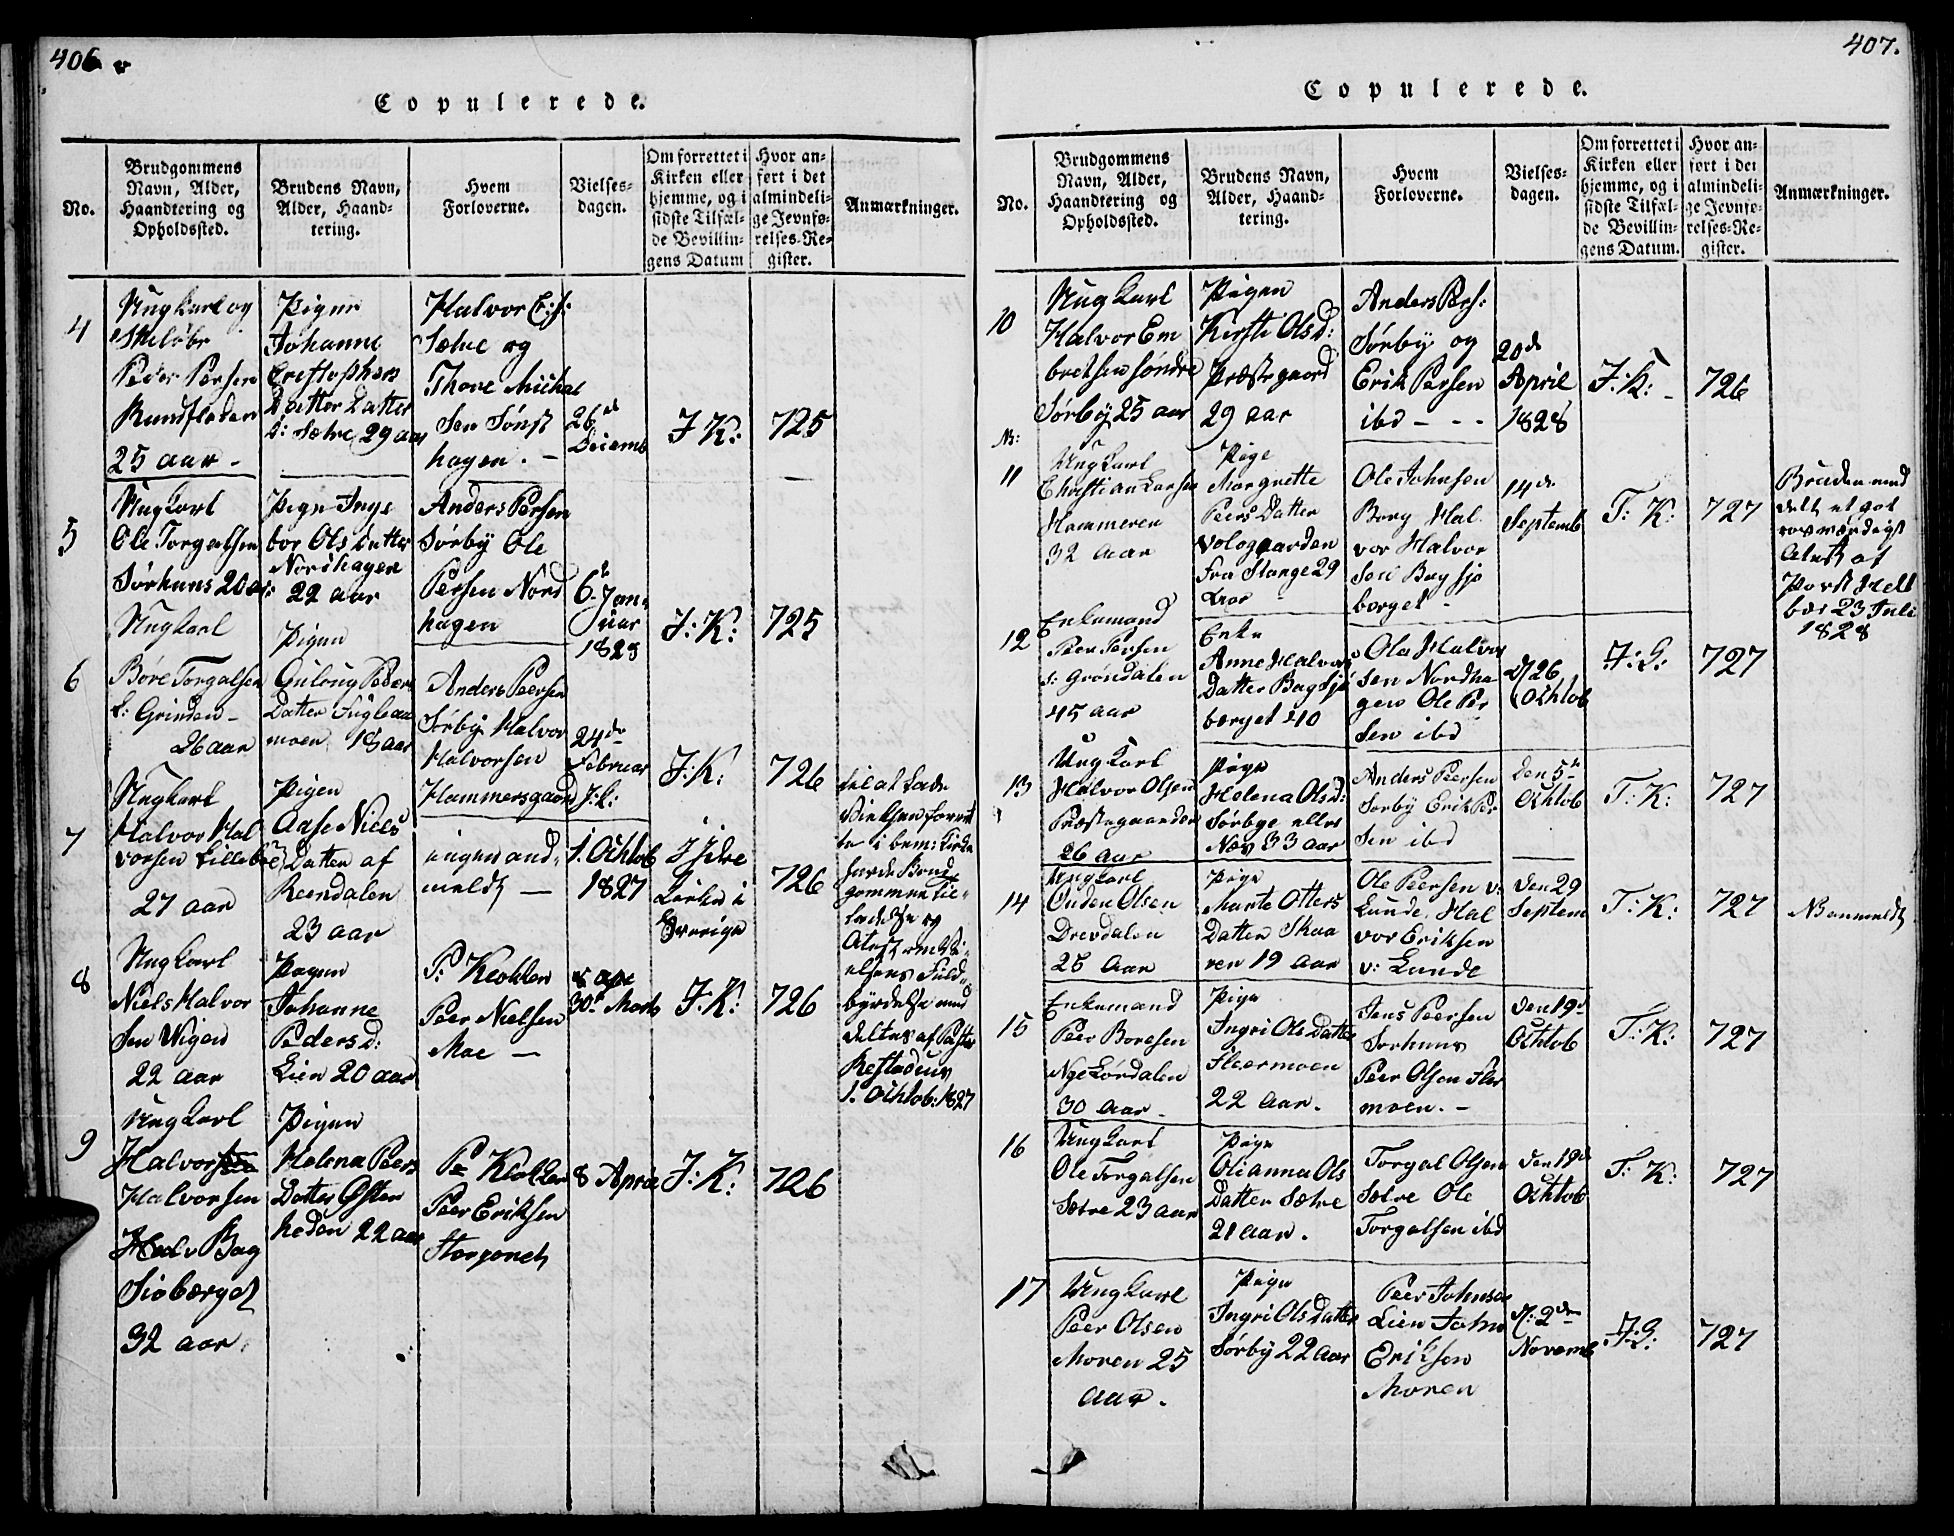 406
Copulerede.
No.
Brudgommens
Navn, Alder,
Haandtering og
Opholdssted.
Brudens Navn,
Alder, Haand-
tering.
Hvem
Forloverne.
Vielses-
dagen.
Om forrettet i
Kirken eller
hjemme, og i
sidste Tilfæl-
de Bevillin-
gens Datum
Hvor an-
ført i det
almindeli-
ge Jevnfø-
relses-Re-
gister.
Anmærkninger.
4
Ungkarl og
Peder Persen
Rundfloden
25 aar -
Pigen
Johanne
Cristophers
Datter
Sætre 29 aar
Halvor E: S:
Sætre og
Thore Michel
Sen Sønst
hagen. -
26d
Decemb
J K:
725
5
Ungkarl
Ole Torgalsen
Sørhuus 20 aar:
Pigen Inge
bor Olsdatter
Nordhagen
22 aar
Anders Persen
Sørby Ole
Persen Nord
hagen
6 Jan-
uar
1828
J: K:
725
6
Ungkarl
Børe Torgalsen
L: Grinden -
26 aar
Pigen
Gulong Peders
Datter Fuglaa
moen 18 aar
Anders Peersen
Sørby Halvor
Halvorsen
Hammersgaard
24de
Februar
J: K:
726
7
Ungkarl
Halvor Hal
vorsen Lillebo
27 aar
Pigen
Aase Niels
Datter af
Reendalen
23 aar
ingen and-
meldt -
1. Ochtob
1827
J Idre
Kirke i
Sverige
726
til at lade
Vielsen forret
te i bem: Kirke
havde Brud
gommen til-
ladelse og
Atest om Vi-
elsens Fuld-
byrdelse med
deltes af Pastor
Restadius
1. Ochtob: 1827
8
Ungkarl
Niels Halvor
Sen Wigen
22 aar
Pigen
Johanne
Peders d:
Lien 20 aar
P: Klokker
Peer Nielsen
Moe -
30 Marts
J: K:
726
9
Ungkarl
Halvor
Halvorsen
Bag
Siøberget
32 aar
Pigen
Helena Peers
Datter Østen
heden 22 aar
Pr Klokker
Peer Eriksen
8 April
J: K:
726
407.
Copulerede.
No.
Brudgommens
Navn, Alder,
Haandtering og
Opholdssted.
Brudens Navn,
Alder, Haand-
tering.
Hvem
Forloverne.
Vielses-
dagen.
Om forrettet i
Kirken eller
hjemme, og i
sidste Tilfæl-
de Bevillin-
gens Datum.
Hvor an-
ført i det
almindeli-
ge Jevnfø-
relses-Re-
gister.
Anmærkninger.
10
Ungkarl
Halvor Em
bretsen søndre
Sørby 25 aar
Pigen
Kirsti Olsd:
Præstegaard
29 aar
Anders Pers:
Sørby og
Erik Persen
ibd - - -
20de
April
1828
J: K: -
726
N:
11
Ungkarl
Christian Larsen
Hammeren
32 aar
Pige
Margrette
Peers Datter
Vologaarden
fra Stange 29
Aar
Ole Johnsen
Borg Hal-
vor Halvor
Sen Bagsjø
berget -
14de
Septemb
T: K:
727
Bruden med
delt et got
roxværdigt
Atest af
Parst Hell
bær 23 Juli
1828
12
Enkemand
Peer Persen
S: Grøndalen
45 aar
Enke
Anne Halvors
Datter Bagsjø
berget 40
Ola Halvor
Sen Nordha-
gen Ole Per
Sen ibd
D/ 26
Ochtob
J: G:
727
13
Ungkarl
Halvor Olsen
Præstegaarden
26 aar
Pige
Helena Olsd:
Sørbye eller
Næs 33 aar
Anders Peersen
Sørby Erik Per
Sen ibd
Den 5te
Ochtob
T: K:
727
14
Ungkarl
Ouden Olsen
Drevdalen
25 Aar
Pige
Marte Otters
Datter Skaa
ren 19 aar
Ole Peersen v:
Lunde, Hal
vor Eriksen
v: Lunde
Den 29
Septem
T: K:
727
N Anmeldt
15
Enkemand
Peer Boresen
Nye Lørdalen
30 Aar -
Pige
Ingri Ols Datter
Fleermoen
22 Aar.
Jens Peersen
Sørhuus
Peer Olsen Fler
moen. -
Den 19de
Ochtob
T: K:
727
16
Ungkarl
Ole Torgalsen
Sætre 23 aar
Pige
Olianna Ols
Datter Sætre
21 aar.
Torgal Olsen
Sætre Ole
Torgalsen ibd
Den 19de
Ochtob
T: K:
727
17
Ungkarl
Peer Olsen
Moren 25
aar.
Pige
Ingri Ols Datter
Sørby 22 Aar
Peer Johnsen
Lien John
Eriksen
Moren
D: 2den
Novemb
J: G:
727